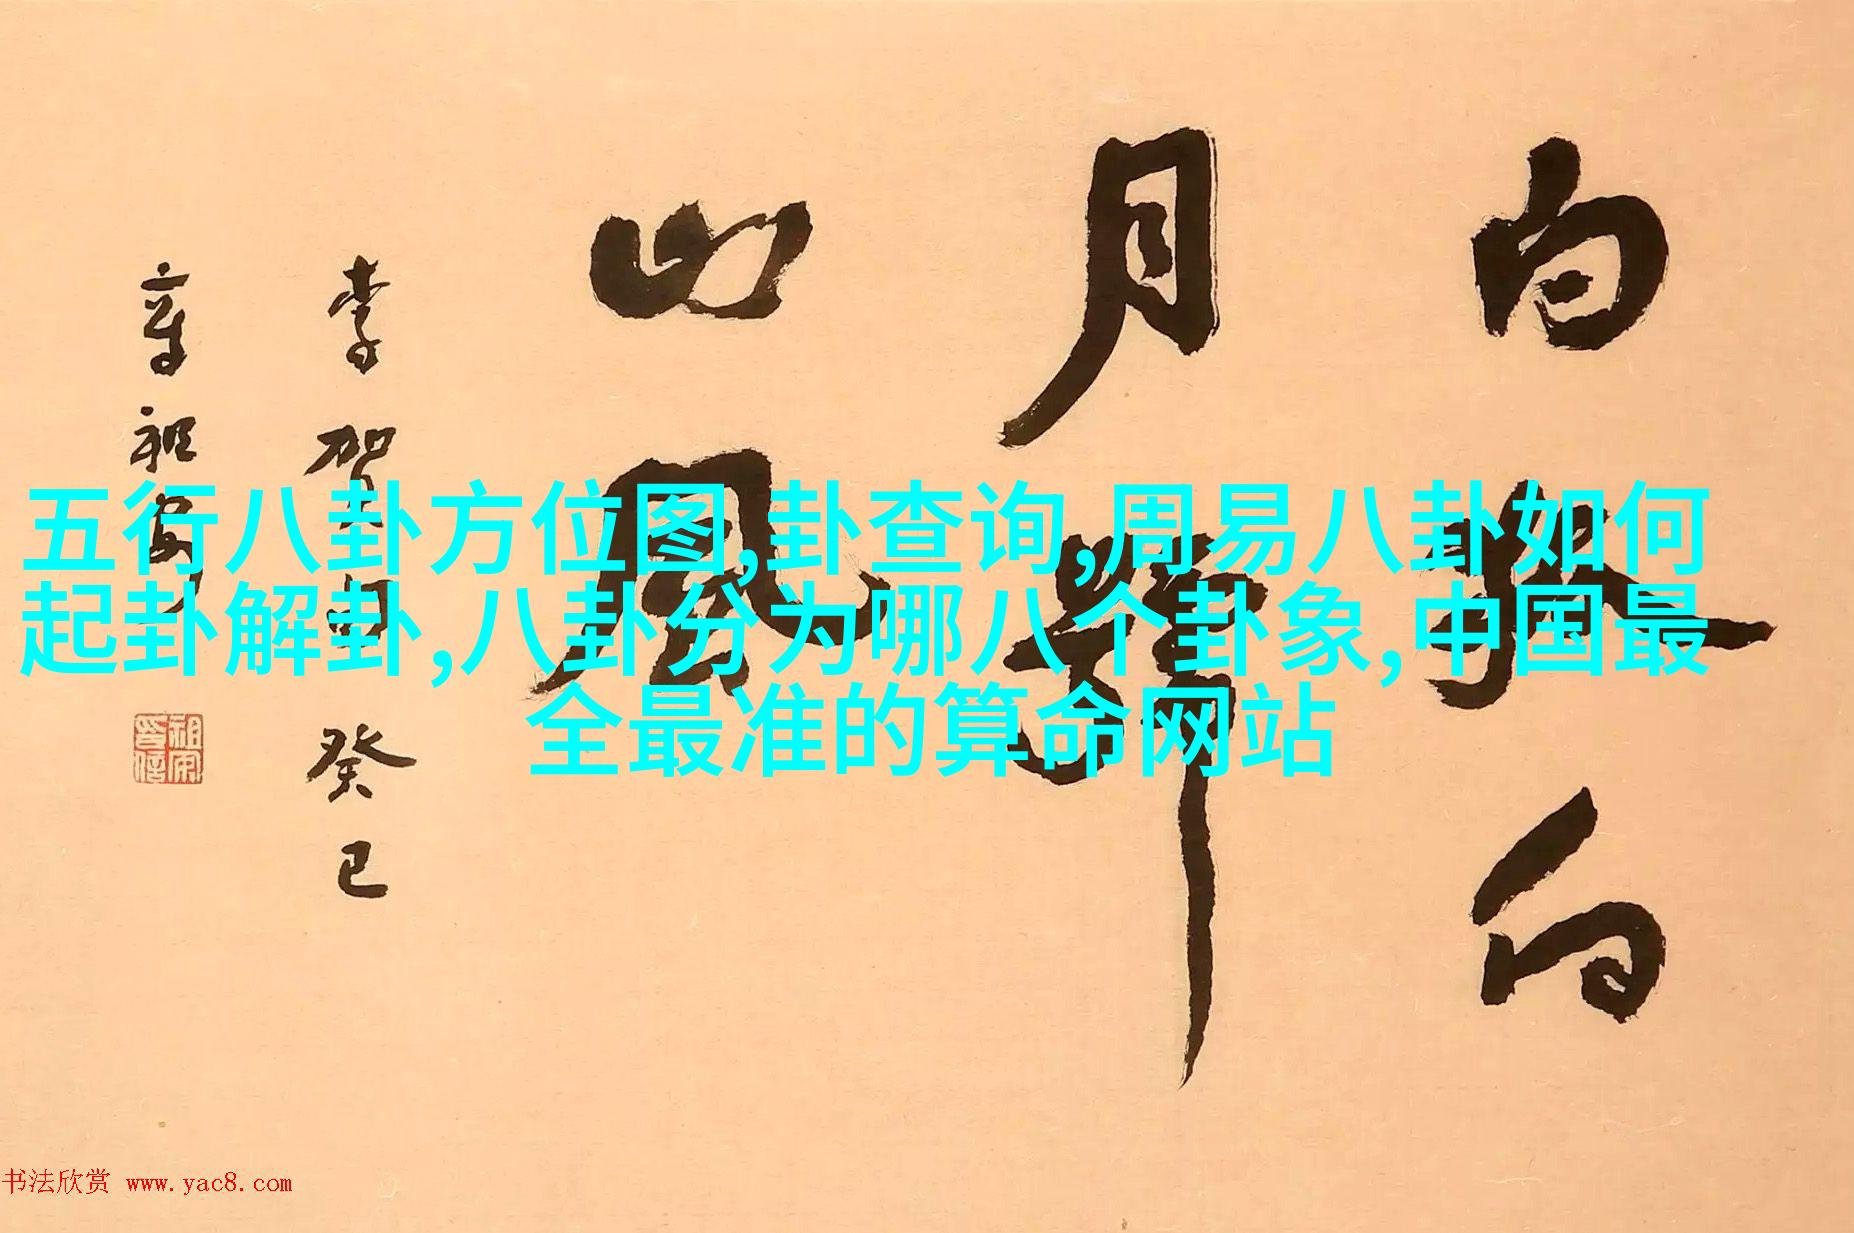 白狐向
月號
山風
李賀句 癸巳
章祖安
五行八卦方位图,卦查询,周易八卦如何
起卦解卦,八卦分为哪八个卦象,中国最
全最准的算命网站
书法欣赏 www.yac8.com